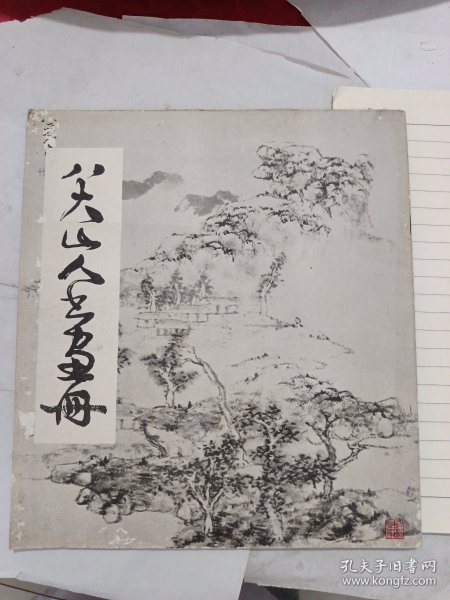 八大山人书画册
孔夫子旧书网
www.kongfz.com